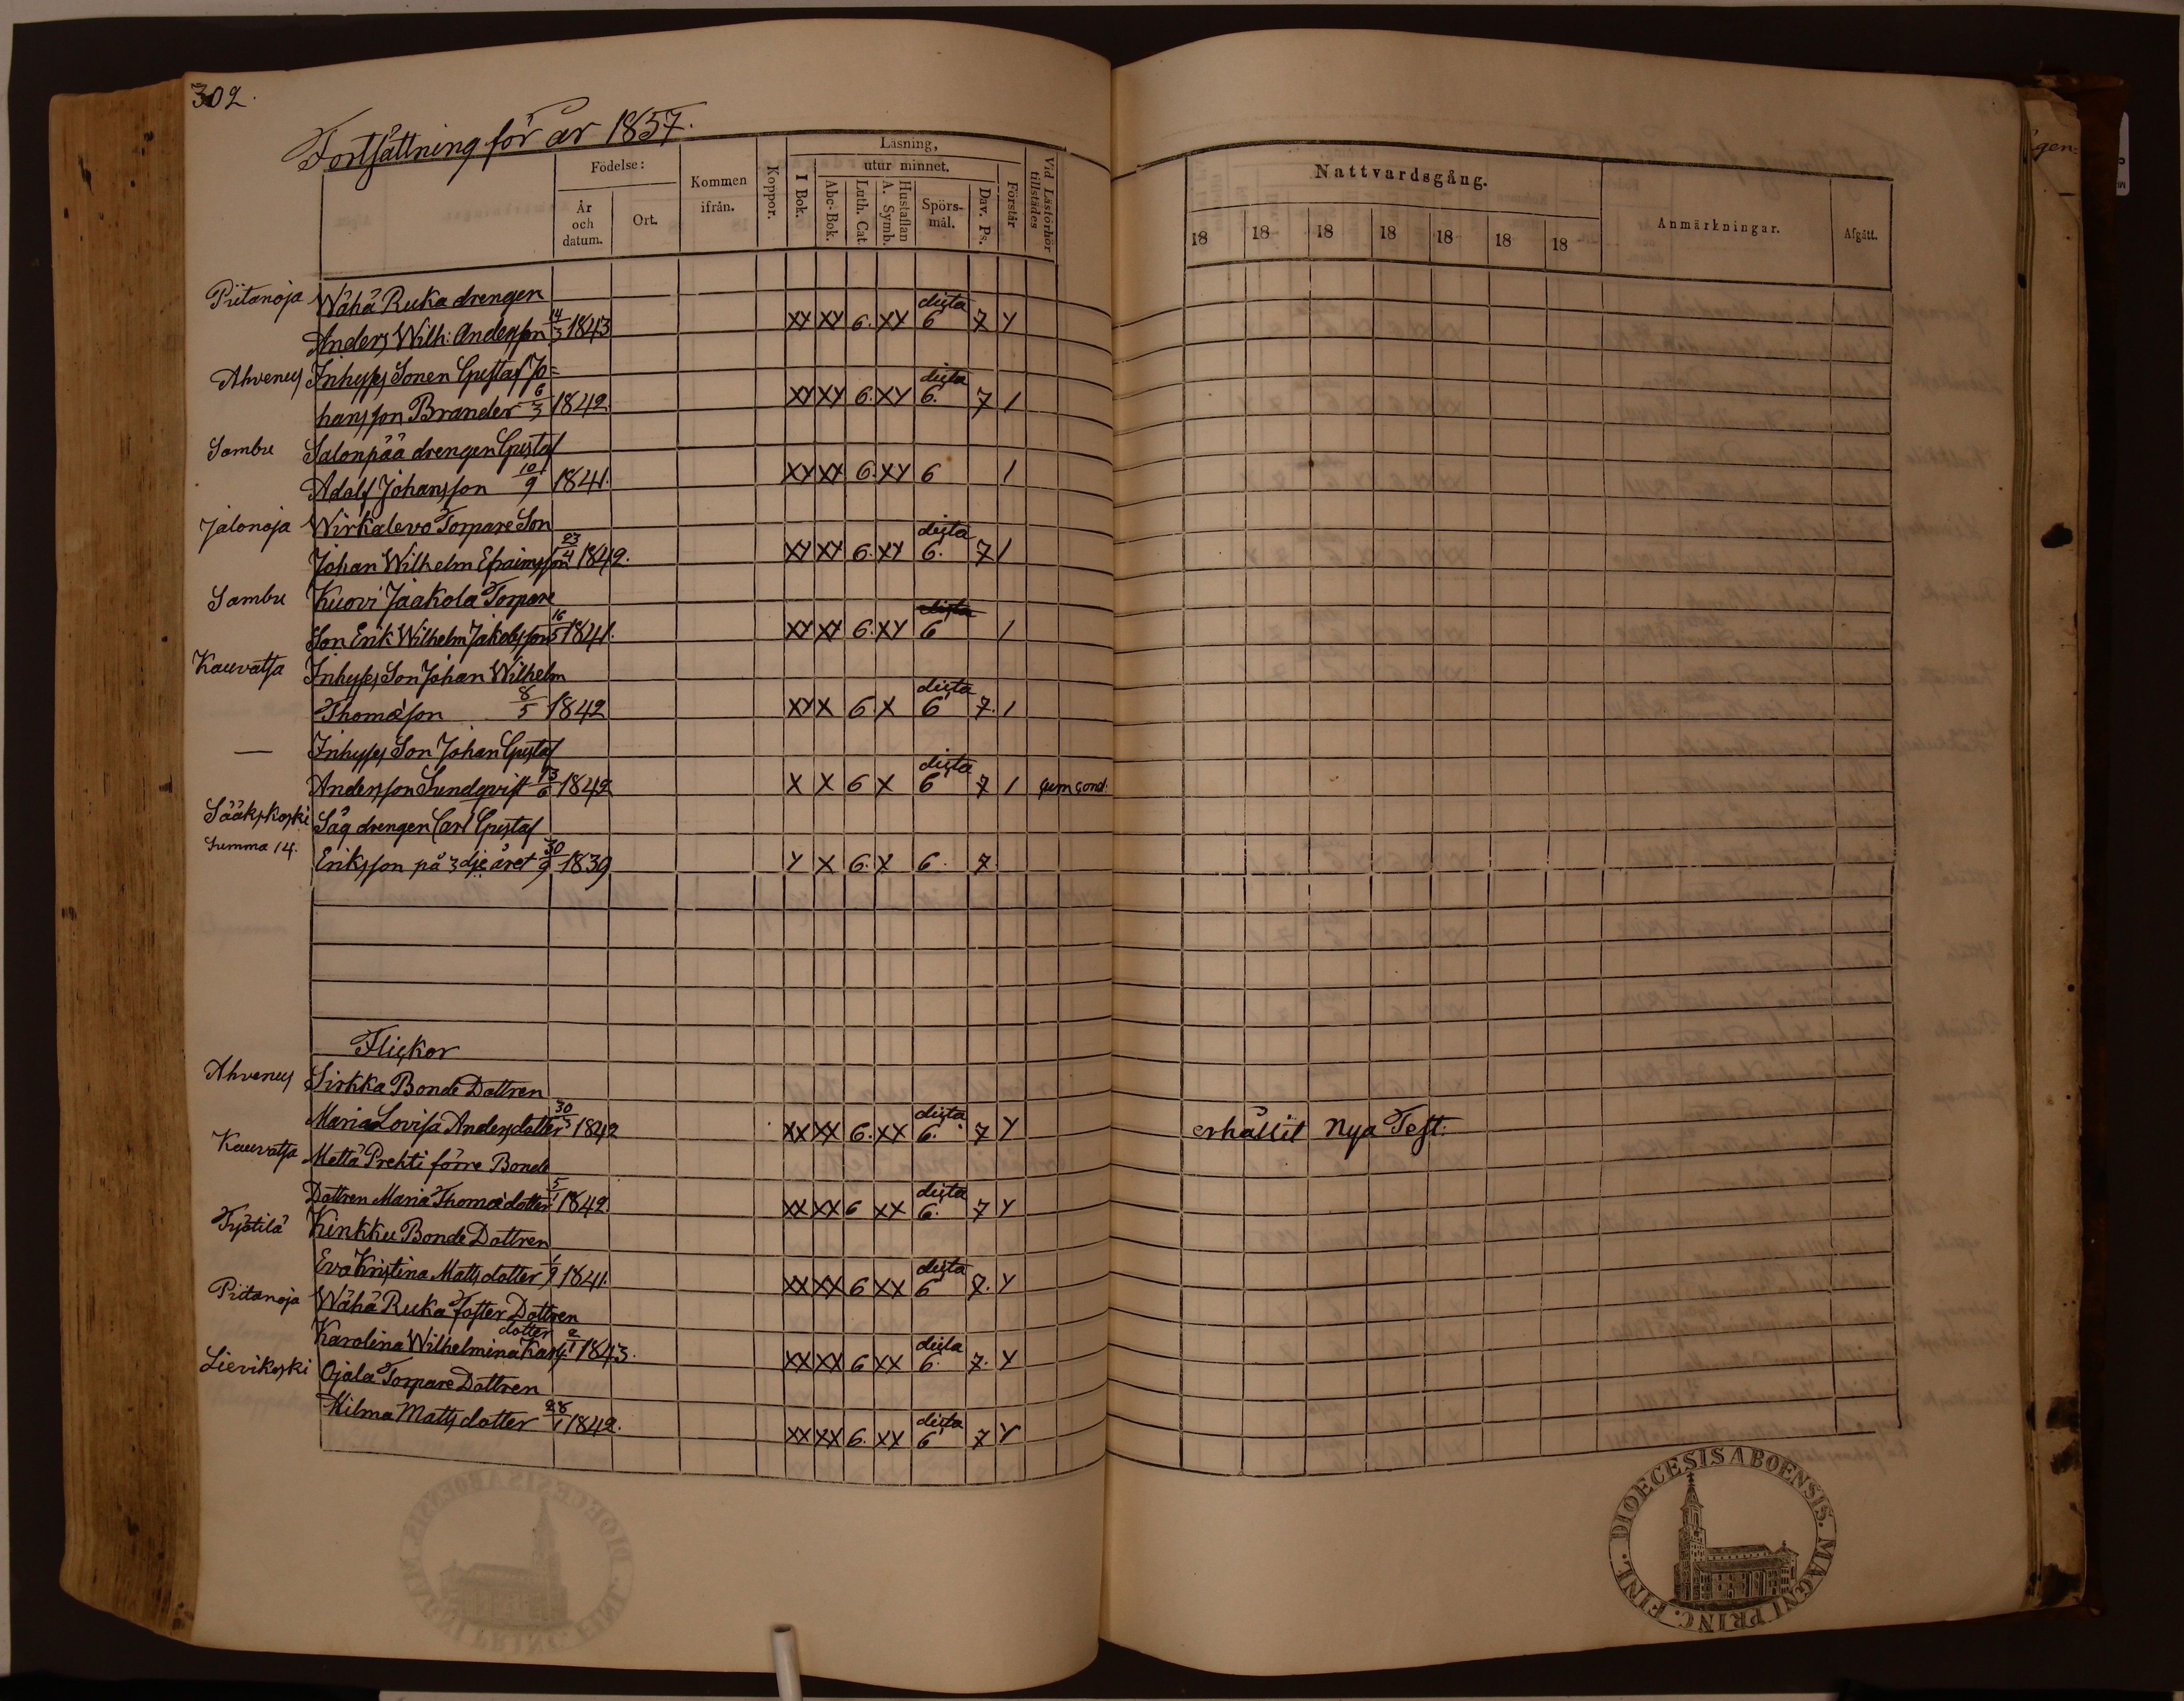 302.
Fortsättning för år 1857.
Födelse:
År och datum.
Ort.
Kommen ifrån.
Koppor.
Läsning,
I Bok.
utur minnet.
Abc-Bok.
Luth. Cat.
Hustaflan A. Symb.
Spörsmål.
Dav. Ps.
Förstår
Vid Läsförhör tillstädes
Nattvardsgång.
18 18 18 18 18 18 18
Anmärkningar.
Afgått.
Piitanoja Wähä Ruka drengen
Anders Wilh: Andersson 14/3 1843 XY XY 6. XY dicta 6 7 Y
Ahvenus Inhyses Sonen Gustaf Jo=
hansson Brander 6/3 1842. XY XY 6. XY dicta 6. 7 1
Sambu Salonpää drengen Gustaf
Adolf Johansson 10/9 1841. XY XX 6. XY 6 1
Jalonoja Wirkalevo Torpare Son
Johan Wilhelm Efraimsson 23/4 1842. XY XY 6. XY dicta 6. 7 1
Sambu Kuovi Jaakola Torpare
Son Erik Wilhelm Jakobsson 16/5 1841. XY XY 6. XY dicta 6 1
Kauvatsa Inhyses Son Johan Wilhelm
Thomæson 8/5 1842 XY X 6. X dicta 6 7. 1
— Inhyses Son Johan Gustaf
Andersson Sundqvist 13/6 1842 X X 6 X dicta 6 7 1 cum cond.
Sääkskoski Såg drengen Carl Gustaf
Summa 14. Eriksson på 3dje året 30/9 1839 Y X 6. X 6. 7.
Flickor
Ahvenus Sirkka Bonde Dottren
Maria Lovisa Andersdotter 30/3 1842 XX XX 6. XX dicta 6. 7 Y erhållit Nya Test.
Kauvatsa Mettä Prehti förre Bonde
Dottren Maria Thomædotter 5/1 1842. XX XX 6 XX dicta 6. 7 Y
Työtilä Kinkku Bonde Dottren
Eva Kristina Matts dotter 1/9 1841. XX XX 6 XX dicta 6 7. Y
Piitanoja Wähä Ruka foster Dottren
Karolina Wilhelmina Karls dotter 2/1 1843. XX XX 6 XX dicta 6. 7. Y
Lievikoski Ojala Torpare Dottren
Hilma Matts dotter 28/1 1842. XX XX 6. XX dicta 6 7 Y
DIOECESIS ABOENSIS. MAGNI PRINC. FINL.